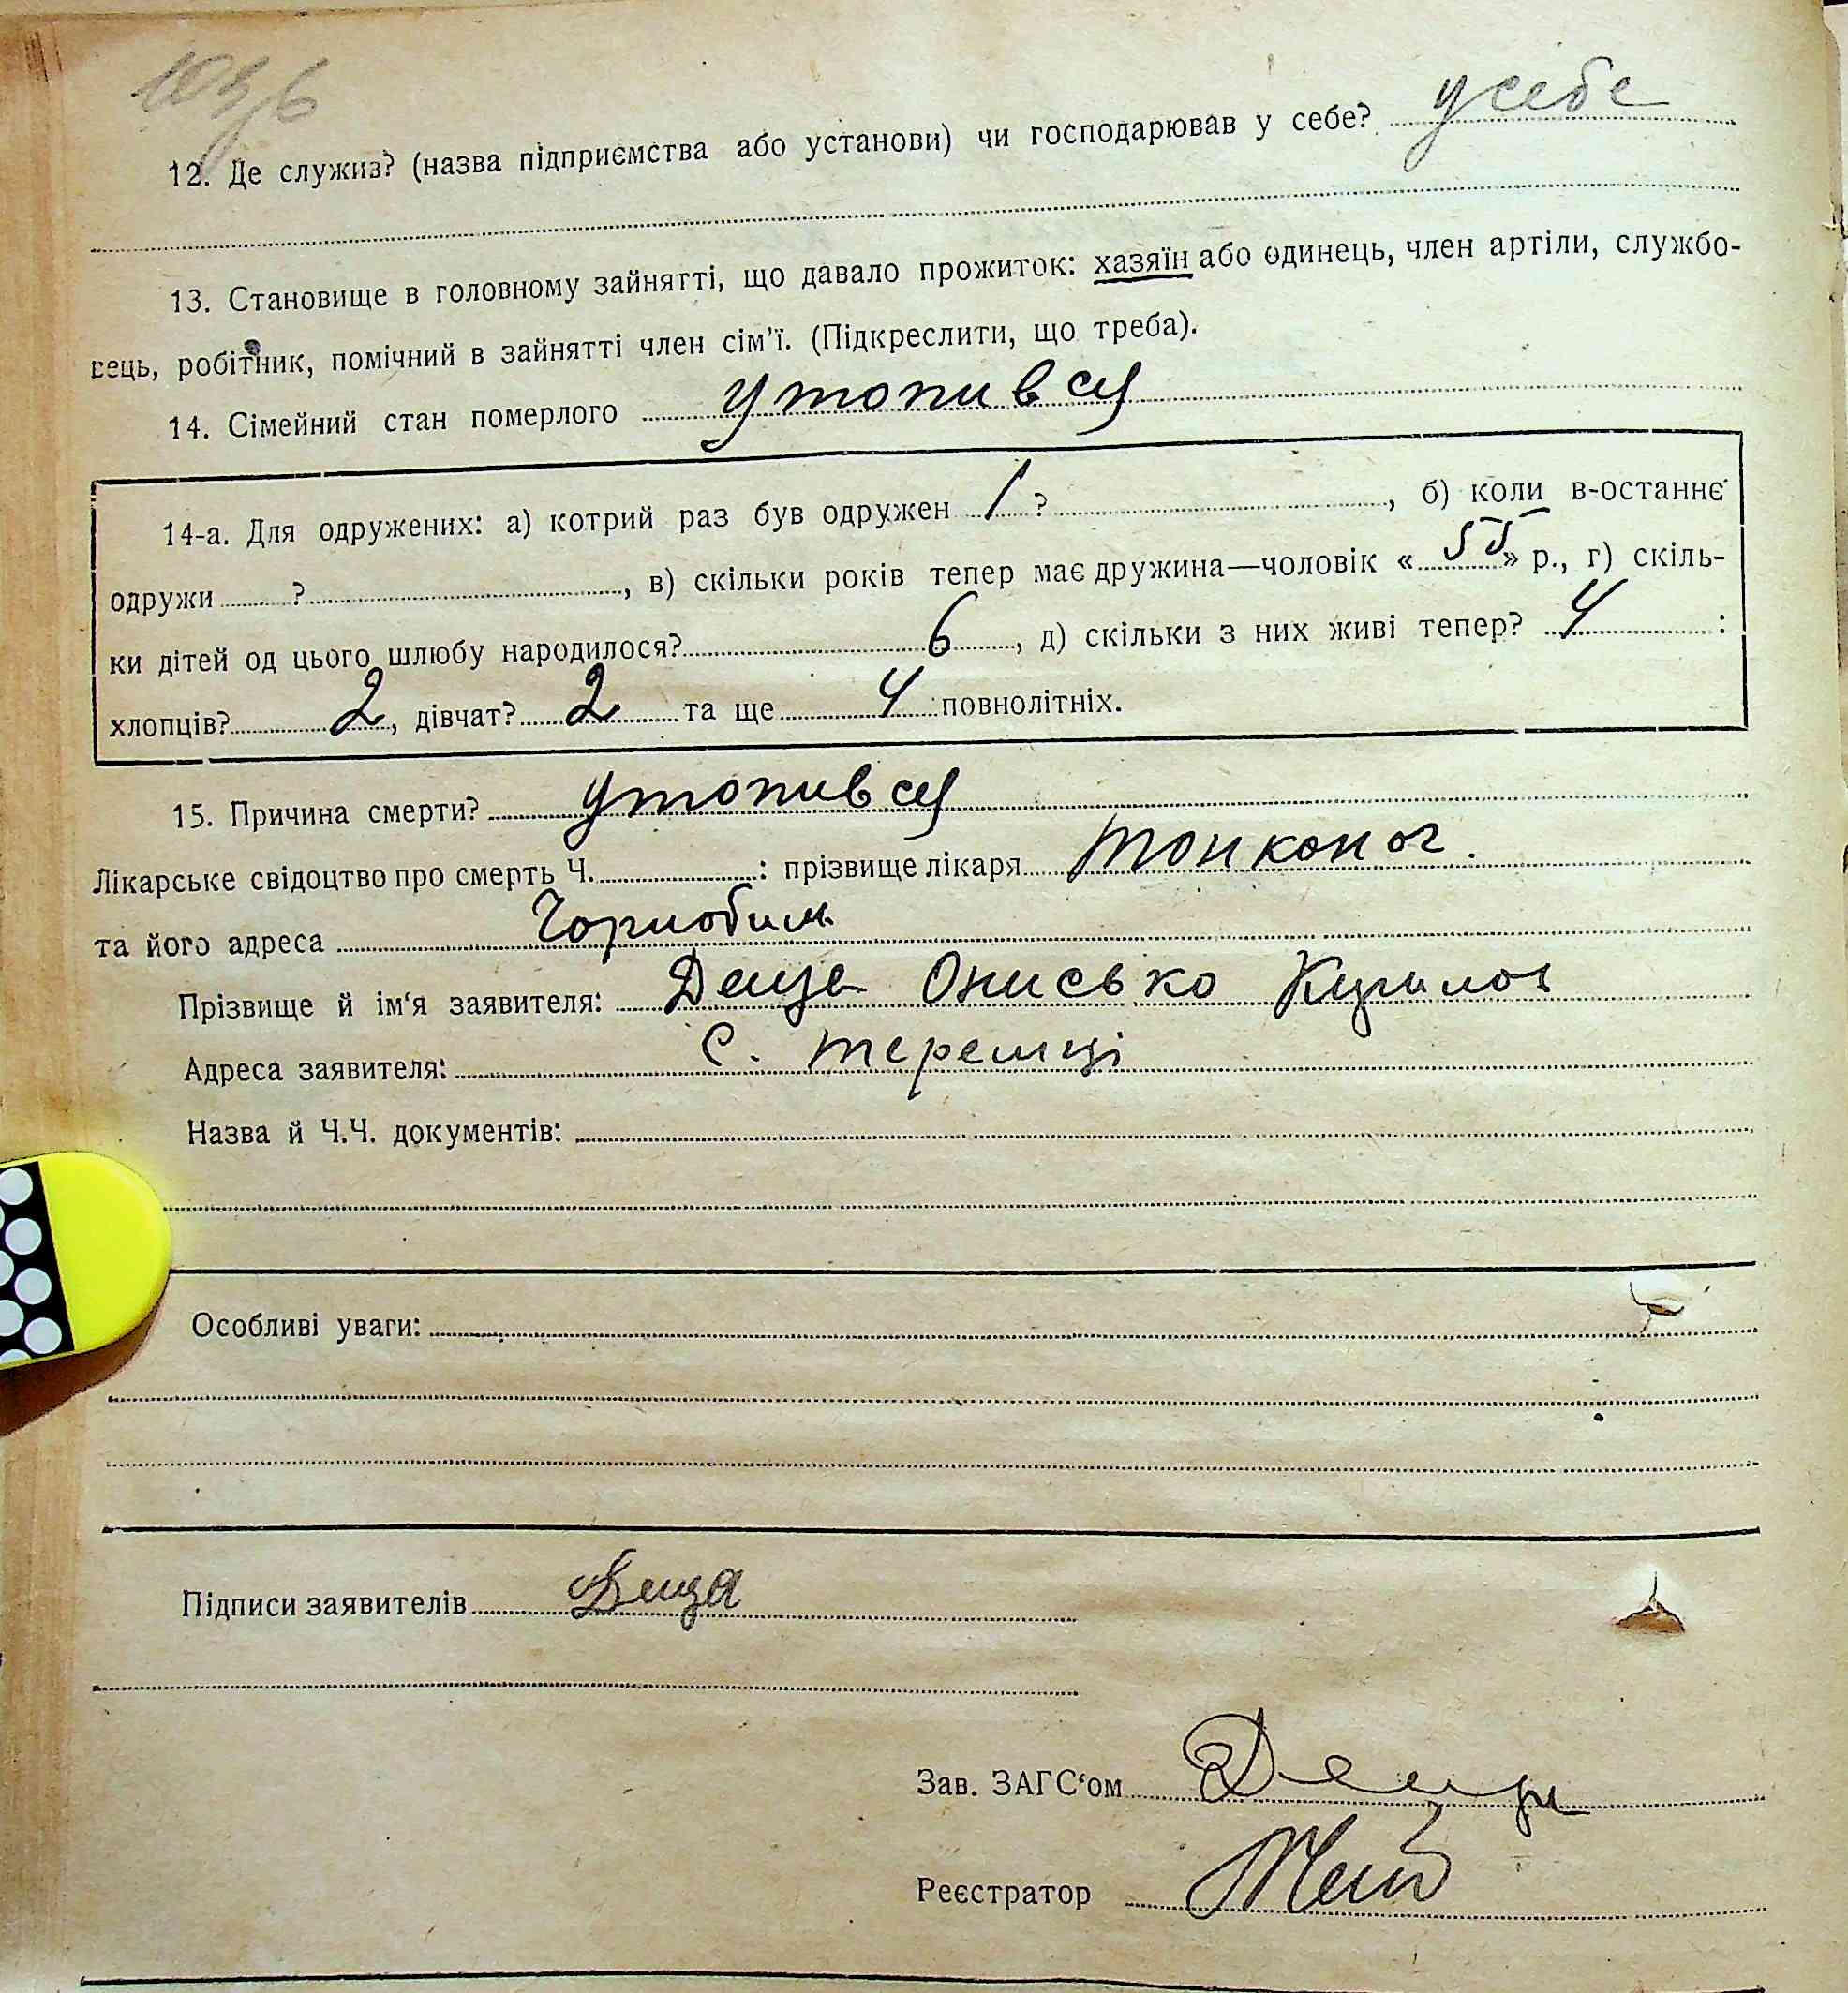 12. Де служив? (назва підприємства або установи) чи господарював у себе? у себе
13. Становище в головному зайнятті, що давало прожиток: хазяїн або одинець, член артіли, службо-
вець, робітник, помічний в зайнятті член сім'ї. (Підкреслити, що треба).
14. Сімейний стан померлого утопився
14-а. Для одружених: а) котрий раз був одружен 1 ? , б) коли в-останнє
одружи ? , в) скільки років тепер має дружина—чоловік «55» р., г) скіль-
ки дітей од цього шлюбу народилося? 6, д) скільки з них живі тепер? 4 :
хлопців? 2, дівчат? 2 та ще 4 повнолітніх.
15. Причина смерти? утопився
Лікарське свідоцтво про смерть Ч. : прізвище лікаря Тонконог.
та його адреса Чорнобиль
Прізвище й ім'я заявителя: Онисько
Адреса заявителя: с. Теремці
Назва й Ч.Ч. документів:
Особливі уваги:
Підписи заявителів
Зав. ЗАГС'ом
Реєстратор